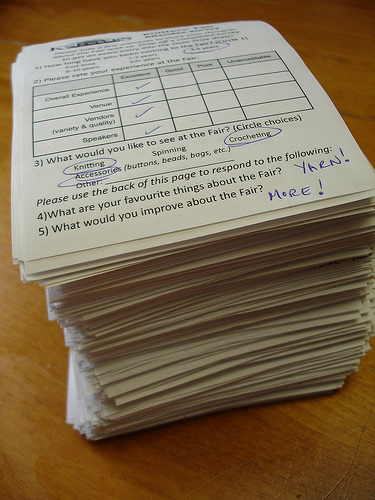 1) How long have you been coming to the Fair? (Circle 1)
First time 1-3 years 4-5 years
6-10 years 10+ years
2) Please rate your experience at the Fair:
Excellent Good Poor Unacceptable
Overall Experience
Venue
Vendors
(variety & quality)
Speakers
3) What would you like to see at the Fair? (Circle choices)
Knitting Spinning Crocheting
Accessories (buttons, beads, bags, etc.)
Other:
Please use the back of this page to respond to the following:
4)What are your favourite things about the Fair? YARN!
5) What would you improve about the Fair? MORE!